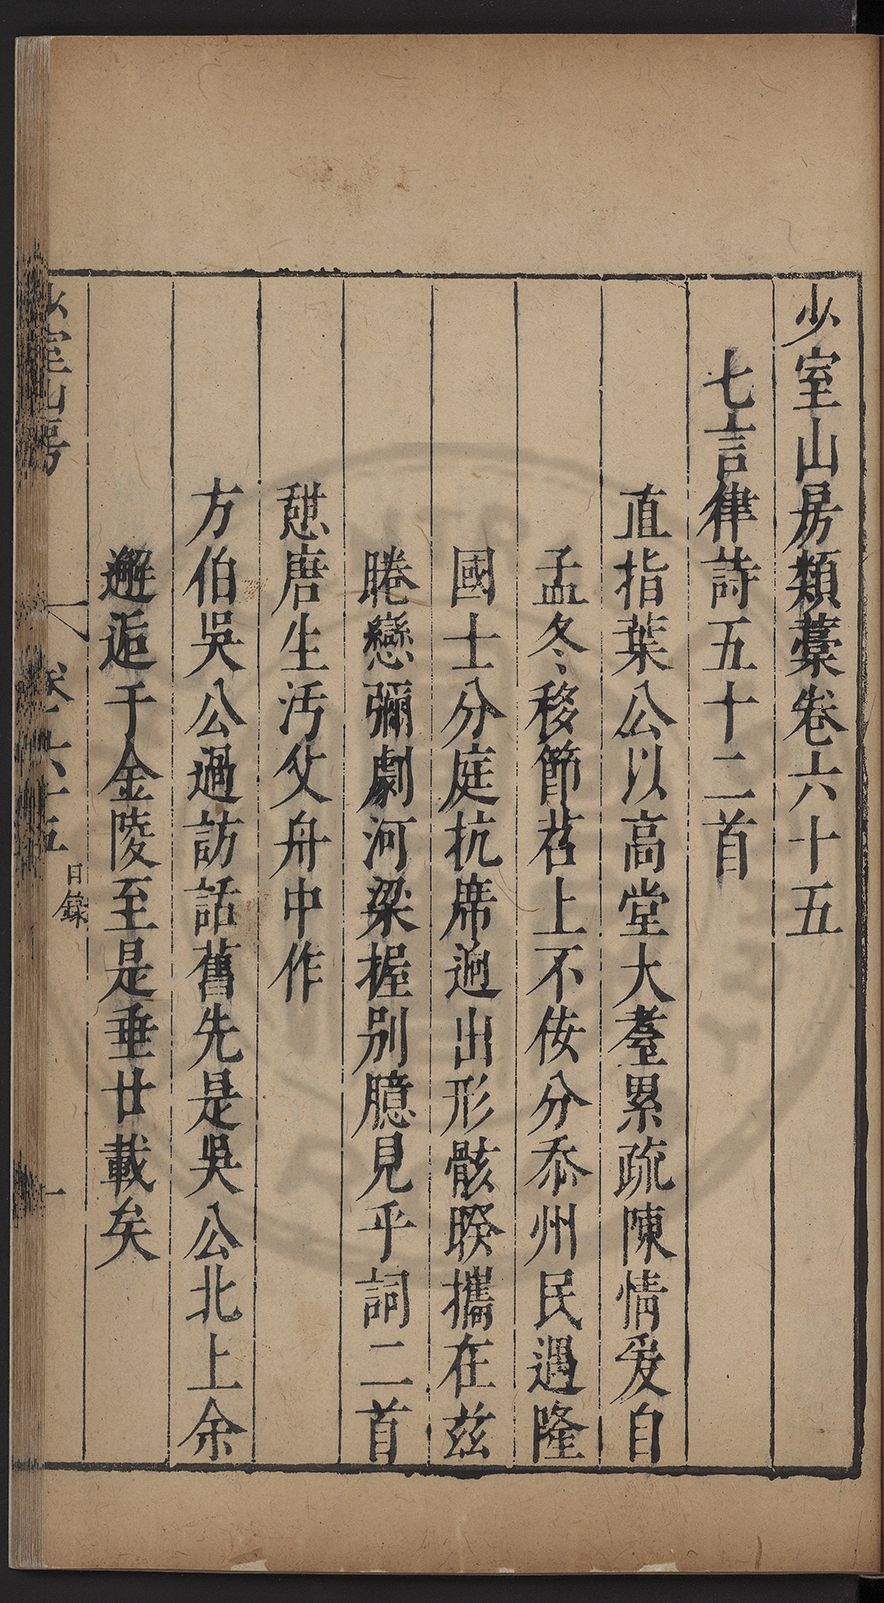 少室山房類藁卷六十五
七言律詩五十二首
直指葉公以高堂大耋累疏陳情爰自
孟冬移節苕上不佞分忝州民遇隆
國士分庭抗席迥出形骸睽攜在茲
睠戀彌劇河梁握別臆見乎詞二首
憇唐生汚攵舟中作
方伯吳公過訪話舊先是吳公北上余
邂逅于金陵至是垂廿載矣
少室山房
卷六十五
目錄
一